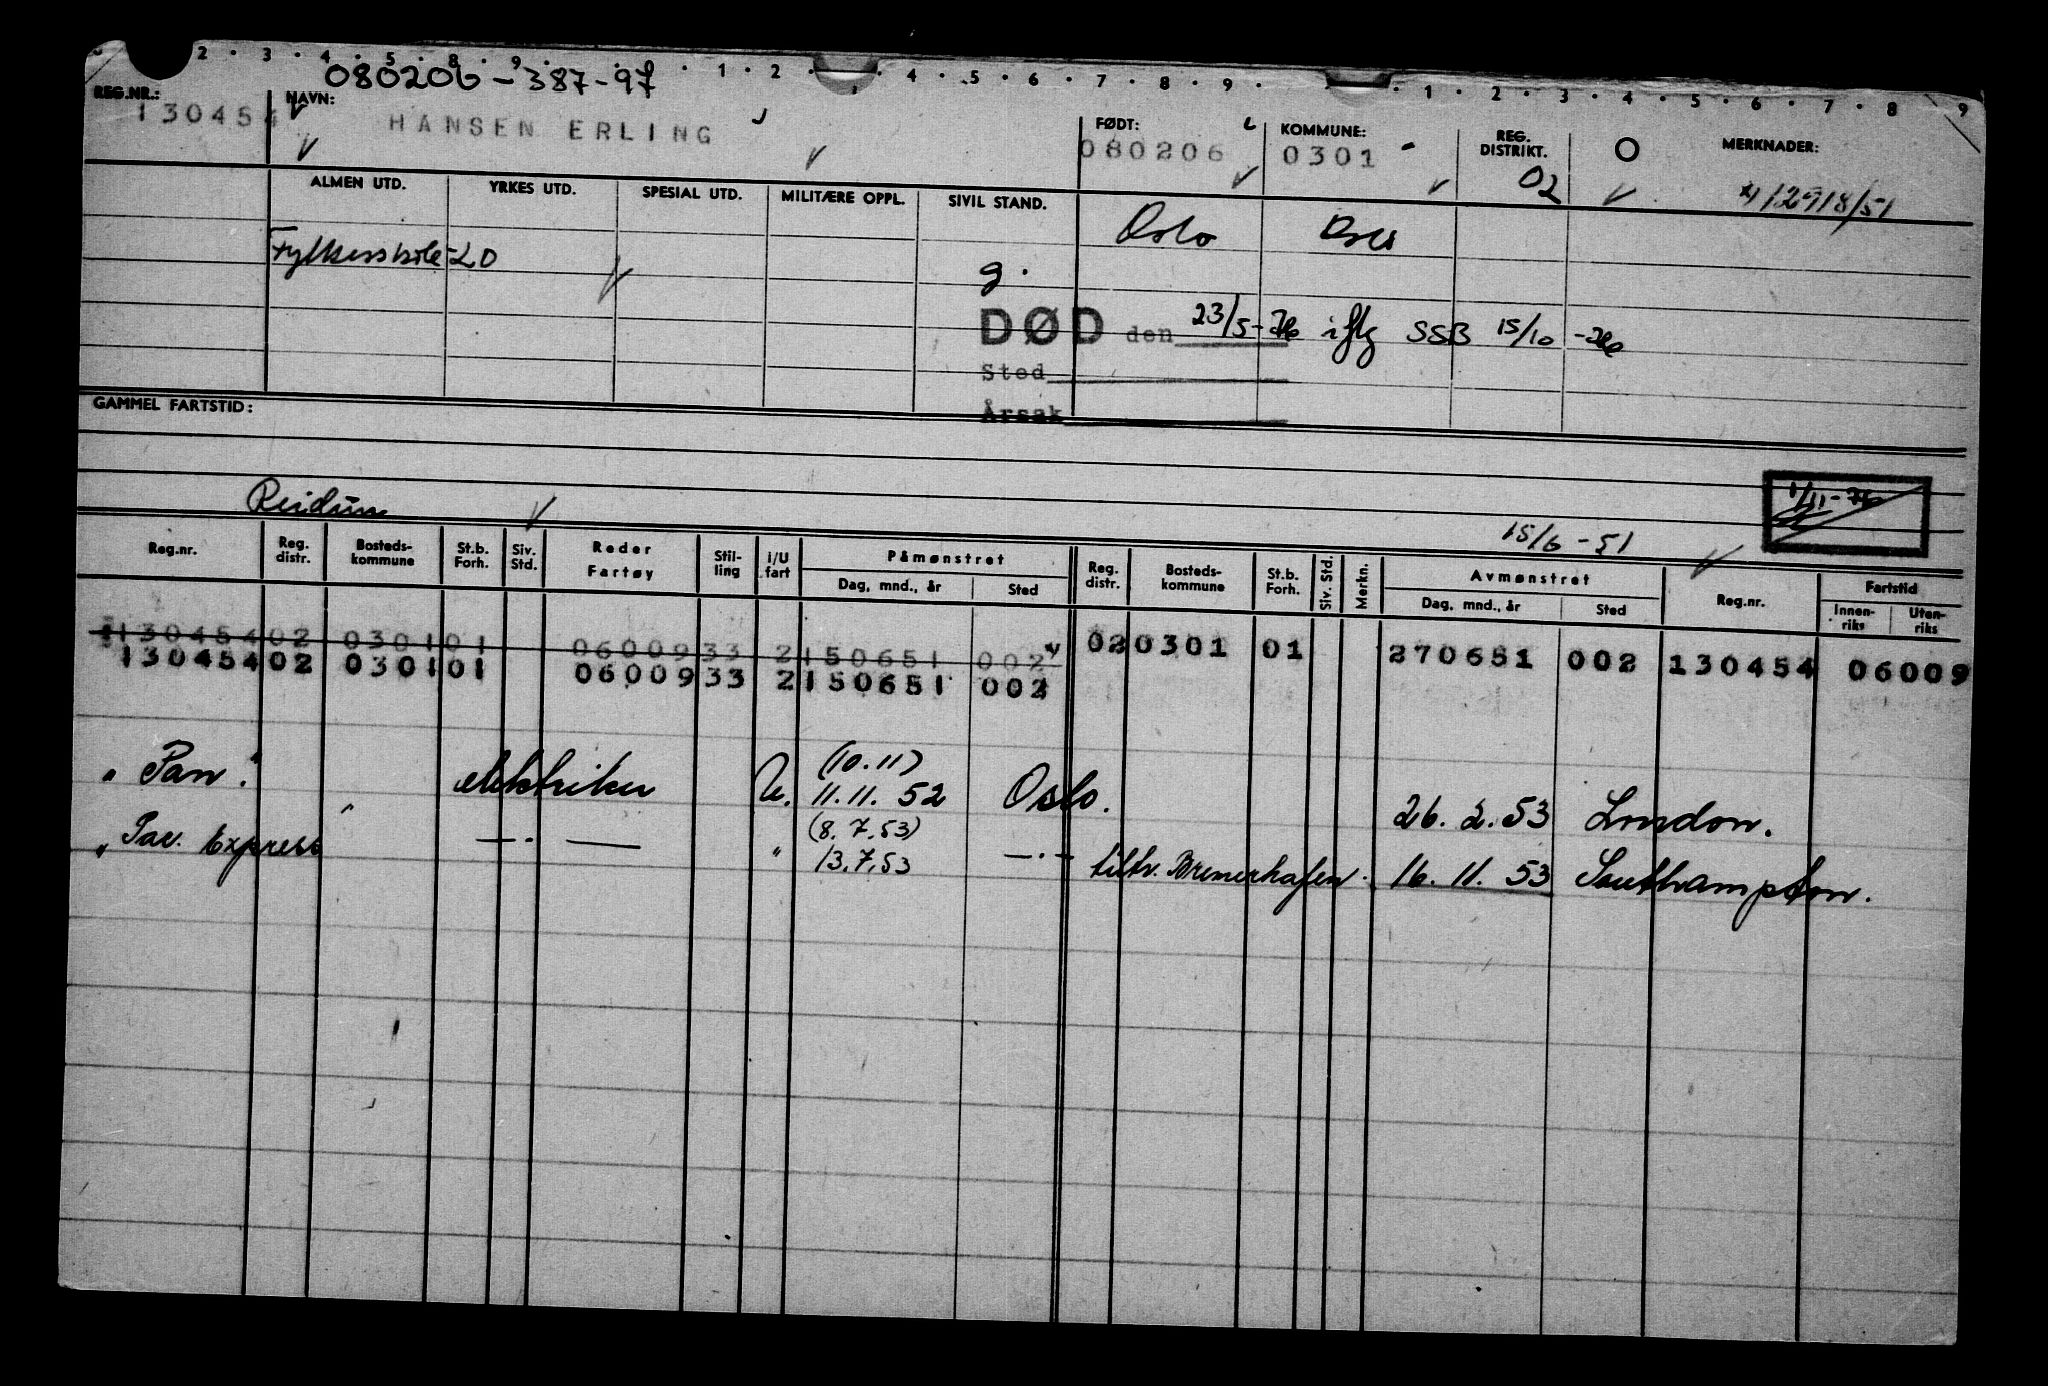 2 · 3 · 4 · 5 · 8 · 9 · 1 · 2 · 4 · 5 · 6 · 7 · 8 · 9 · 1 · 2 · 3 · 4 · 5 · 6 · 7 · 8 · 9
080206-387-97
REG.NR.: NAVN: FØDT: KOMMUNE: REG. DISTRIKT. O MERKNADER:
130454 HANSEN ERLING 080206 0301 02
ALMEN UTD. YRKES UTD. SPESIAL UTD. MILITÆRE OPPL. SIVIL STAND.
Oslo Oslo
Fylkesskole LO g.
DØD den 23/5-76 iflg SSB 15/10-76
Sted
Årsak
GAMMEL FARTSTID:
1/11-76
Reidun 15/6-51
Reg.nr. Reg. distr. Bosteds-kommune St.b. Forh. Siv. Std. Reder Fartøy Stil-ling I/U fart Påmønstret Dag, mnd., år Sted Reg. distr. Bosteds-kommune St.b. Forh. Siv. Std. Merkn. Avmønstret Dag, mnd., år Sted Reg.nr. Fartstid Innen-riks Uten-riks
130454 02 0301 01 06009 33 2 150651 002 02 0301 01 270651 002 130454 06009
130454 02 0301 01 06009 33 2 150651 002
(10.11)
"Pan". elektriker U. 11.11.52 Oslo. 26.2.53 London.
(8.7.53)
"Pac. Express —·— " 13.7.53 —·— tiltr. Bremerhafen. 16.11.53 Southampton.